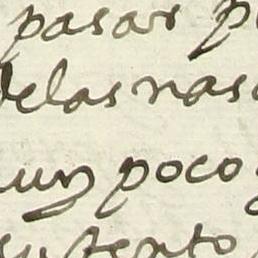 pasar p
delas nas
un poco
sustento